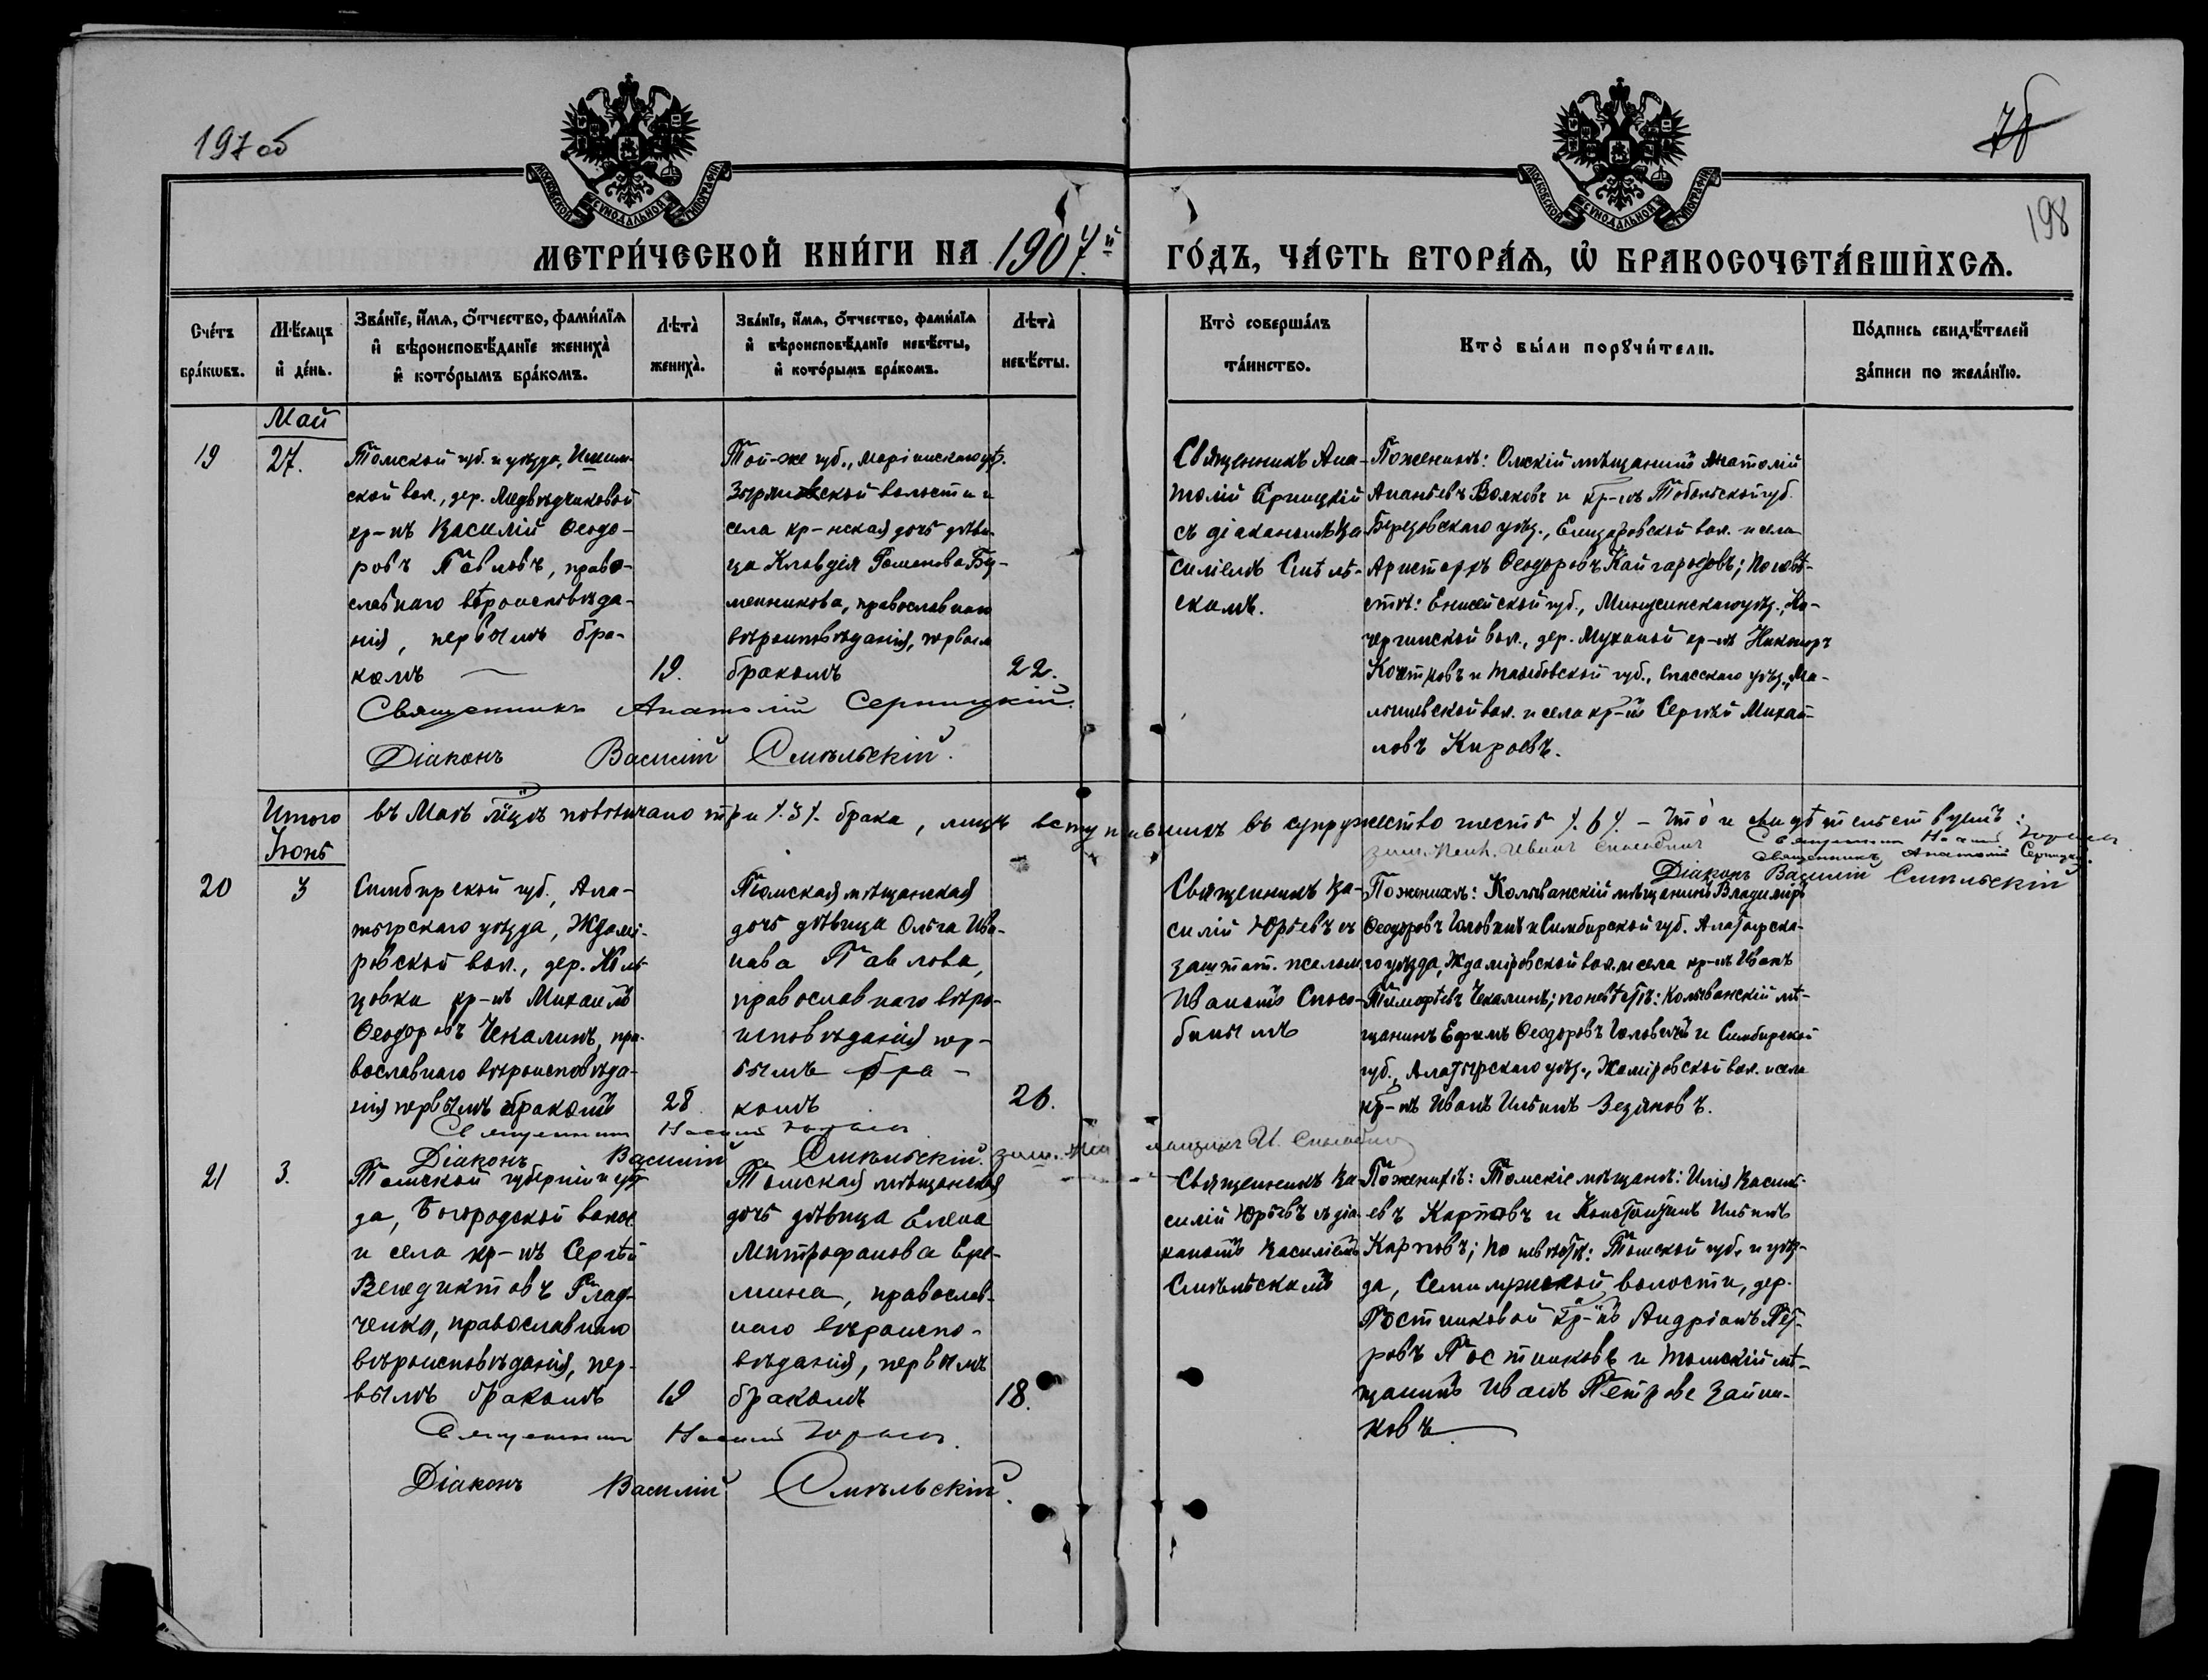 197 об
78
198
МОСКОВСКОЙ СѴНОДАЛЬНОЙ ТИПОГРАФІИ
МОСКОВСКОЙ СѴНОДАЛЬНОЙ ТИПОГРАФІИ
МЕТРИ́ЧЕСКОЙ КНИ́ГИ НА 1907й ГО́ДЪ, ЧА́СТЬ ВТОРА́Я, Ѡ҆ БРАКОСОЧЕТА́ВШИХСЯ.
Сче́тъ бра́кѡвъ.
Мѣ́сяцъ и҆ де́нь.
Зва́нїе, и҆́мѧ, ѻ҆́тчество, фами́лїѧ
и҆ вѣроисповѣ́данїе жениха̀
и҆ кото́рымъ бра́комъ.
Лѣта̀ жениха̀.
Зва́нїе, и҆́мѧ, ѻ҆́тчество, фами́лїѧ
и҆ вѣроисповѣ́данїе невѣ́сты,
и҆ кото́рымъ бра́комъ.
Лѣта̀ невѣ́сты.
Кто̀ соверша́лъ
та́инство.
Кто̀ бы́ли порꙋчи́тели.
По́дпись свидѣ́телей
за́писи по жела́нїю.
Май
19
27.
Томской губ. и уѣзда, Ишим-
ской вол., дер. Медвѣдчиковой
кр-нъ Василій Ѳеодо-
ровъ Павловъ, право-
славнаго вѣроисповѣда-
нія, первымъ бра-
комъ
19.
Той-же губ., Маріинскаго уѣз.
Зырянской волости и
села кр-нская дочь дѣви-
ца Клавдія
православнаго
вѣроисповѣданія, первымъ
бракомъ
22.
Священникъ Ана-
толій Серницкій
съ діакономъ Ва-
силіемъ Смѣль-
скимъ.
По женихѣ: Омскій мѣщанинъ Анатолій
Ананьевъ Волковъ и кр-нъ Тобольской губ.
Березовскаго уѣз., Елизаровской вол. и села
Аристархъ Ѳеодоровъ Кайгародовъ; по невѣ-
стѣ: Енисейской губ., Минусинскаго уѣз., Ко-
чергинской вол., дер. Мукиной кр-нъ Никаноръ
и Тамбовской губ., Спасскаго уѣз.,
вол. и села кр-нъ Сергѣй Михай-
ловъ Кировъ.
Священникъ Анатолій Серницкій.
Діаконъ Василій Смѣльскій.
Итого въ Маѣ м-цѣ повѣнчано три /.3/. брака, лицъ вступившихъ въ супружество шесть /.6/. - Что и свидѣтельствуемъ:
Священникъ Василій Юрьевъ
зашт. псал. Иванъ Способинъ Священникъ Анатолій Серницкій.
Діаконъ Василій Смѣльскій
Іюнь
20
3
Симбирской губ., Ала-
тырскаго уѣзда, Ждамі-
ровской вол., дер.
цовки кр-нъ Михаилъ
Ѳеодоровъ Чекалинъ, пра-
вославнаго вѣроисповѣда-
нія первымъ бракомъ
28
Томская мѣщанская
дочь дѣвица Ольга Ива-
нова Павлова,
православнаго вѣро-
исповѣданія пер-
вымъ бра-
комъ
26.
Священникъ Ва-
силій Юрьевъ съ
заштат. псалом.
Иваномъ Спосо-
бинымъ
По женихѣ: Колыванскій мѣщанинъ Владиміръ
Ѳеодоровъ Головинъ и Симбирской губ. Алатырска-
го уѣзда, Ждаміровской вол. и села кр-нъ Иванъ
Тимофѣевъ Чекалинъ; по невѣстѣ: Колыванскій мѣ-
щанинъ Ефимъ Ѳеодоровъ Головинъ и Симбирской
губ., Алатырскаго уѣз., Жаміровской вол. и села
кр-нъ Иванъ Ильинъ Зезяновъ.
Священникъ Василій Юрьевъ
Діаконъ Василій Смѣльскій. зашт. псаломщикъ И. Способинъ
21
3.
Томской губерніи и уѣз-
да, Богородской волос.
и села кр-нъ Сергѣй
Венедиктовъ Глад-
ченко, православнаго
вѣроисповѣданія, пер-
вымъ бракомъ
19
Томская мѣщанская
дочь дѣвица Елена
Митрофанова Ере-
мина, православ-
наго вѣроиспо-
вѣданія, первымъ
бракомъ
18.
Священникъ Ва-
силій Юрьевъ съ діа-
кономъ Василіемъ
Смѣльскимъ
По женихѣ: Томскіе мѣщане: Илія Васильи-
евъ Карповъ и Константинъ Ильинъ
Карповъ; по невѣстѣ: Томской губ. и уѣз-
да, Семилужской волости, дер.
Постниковой кр-нъ Андріанъ Пет-
ровъ Постниковъ и томскій мѣ-
щанинъ Иванъ Петровъ Зайни-
ковъ
Священникъ Василій Юрьевъ.
Діаконъ Василій Смѣльскій.